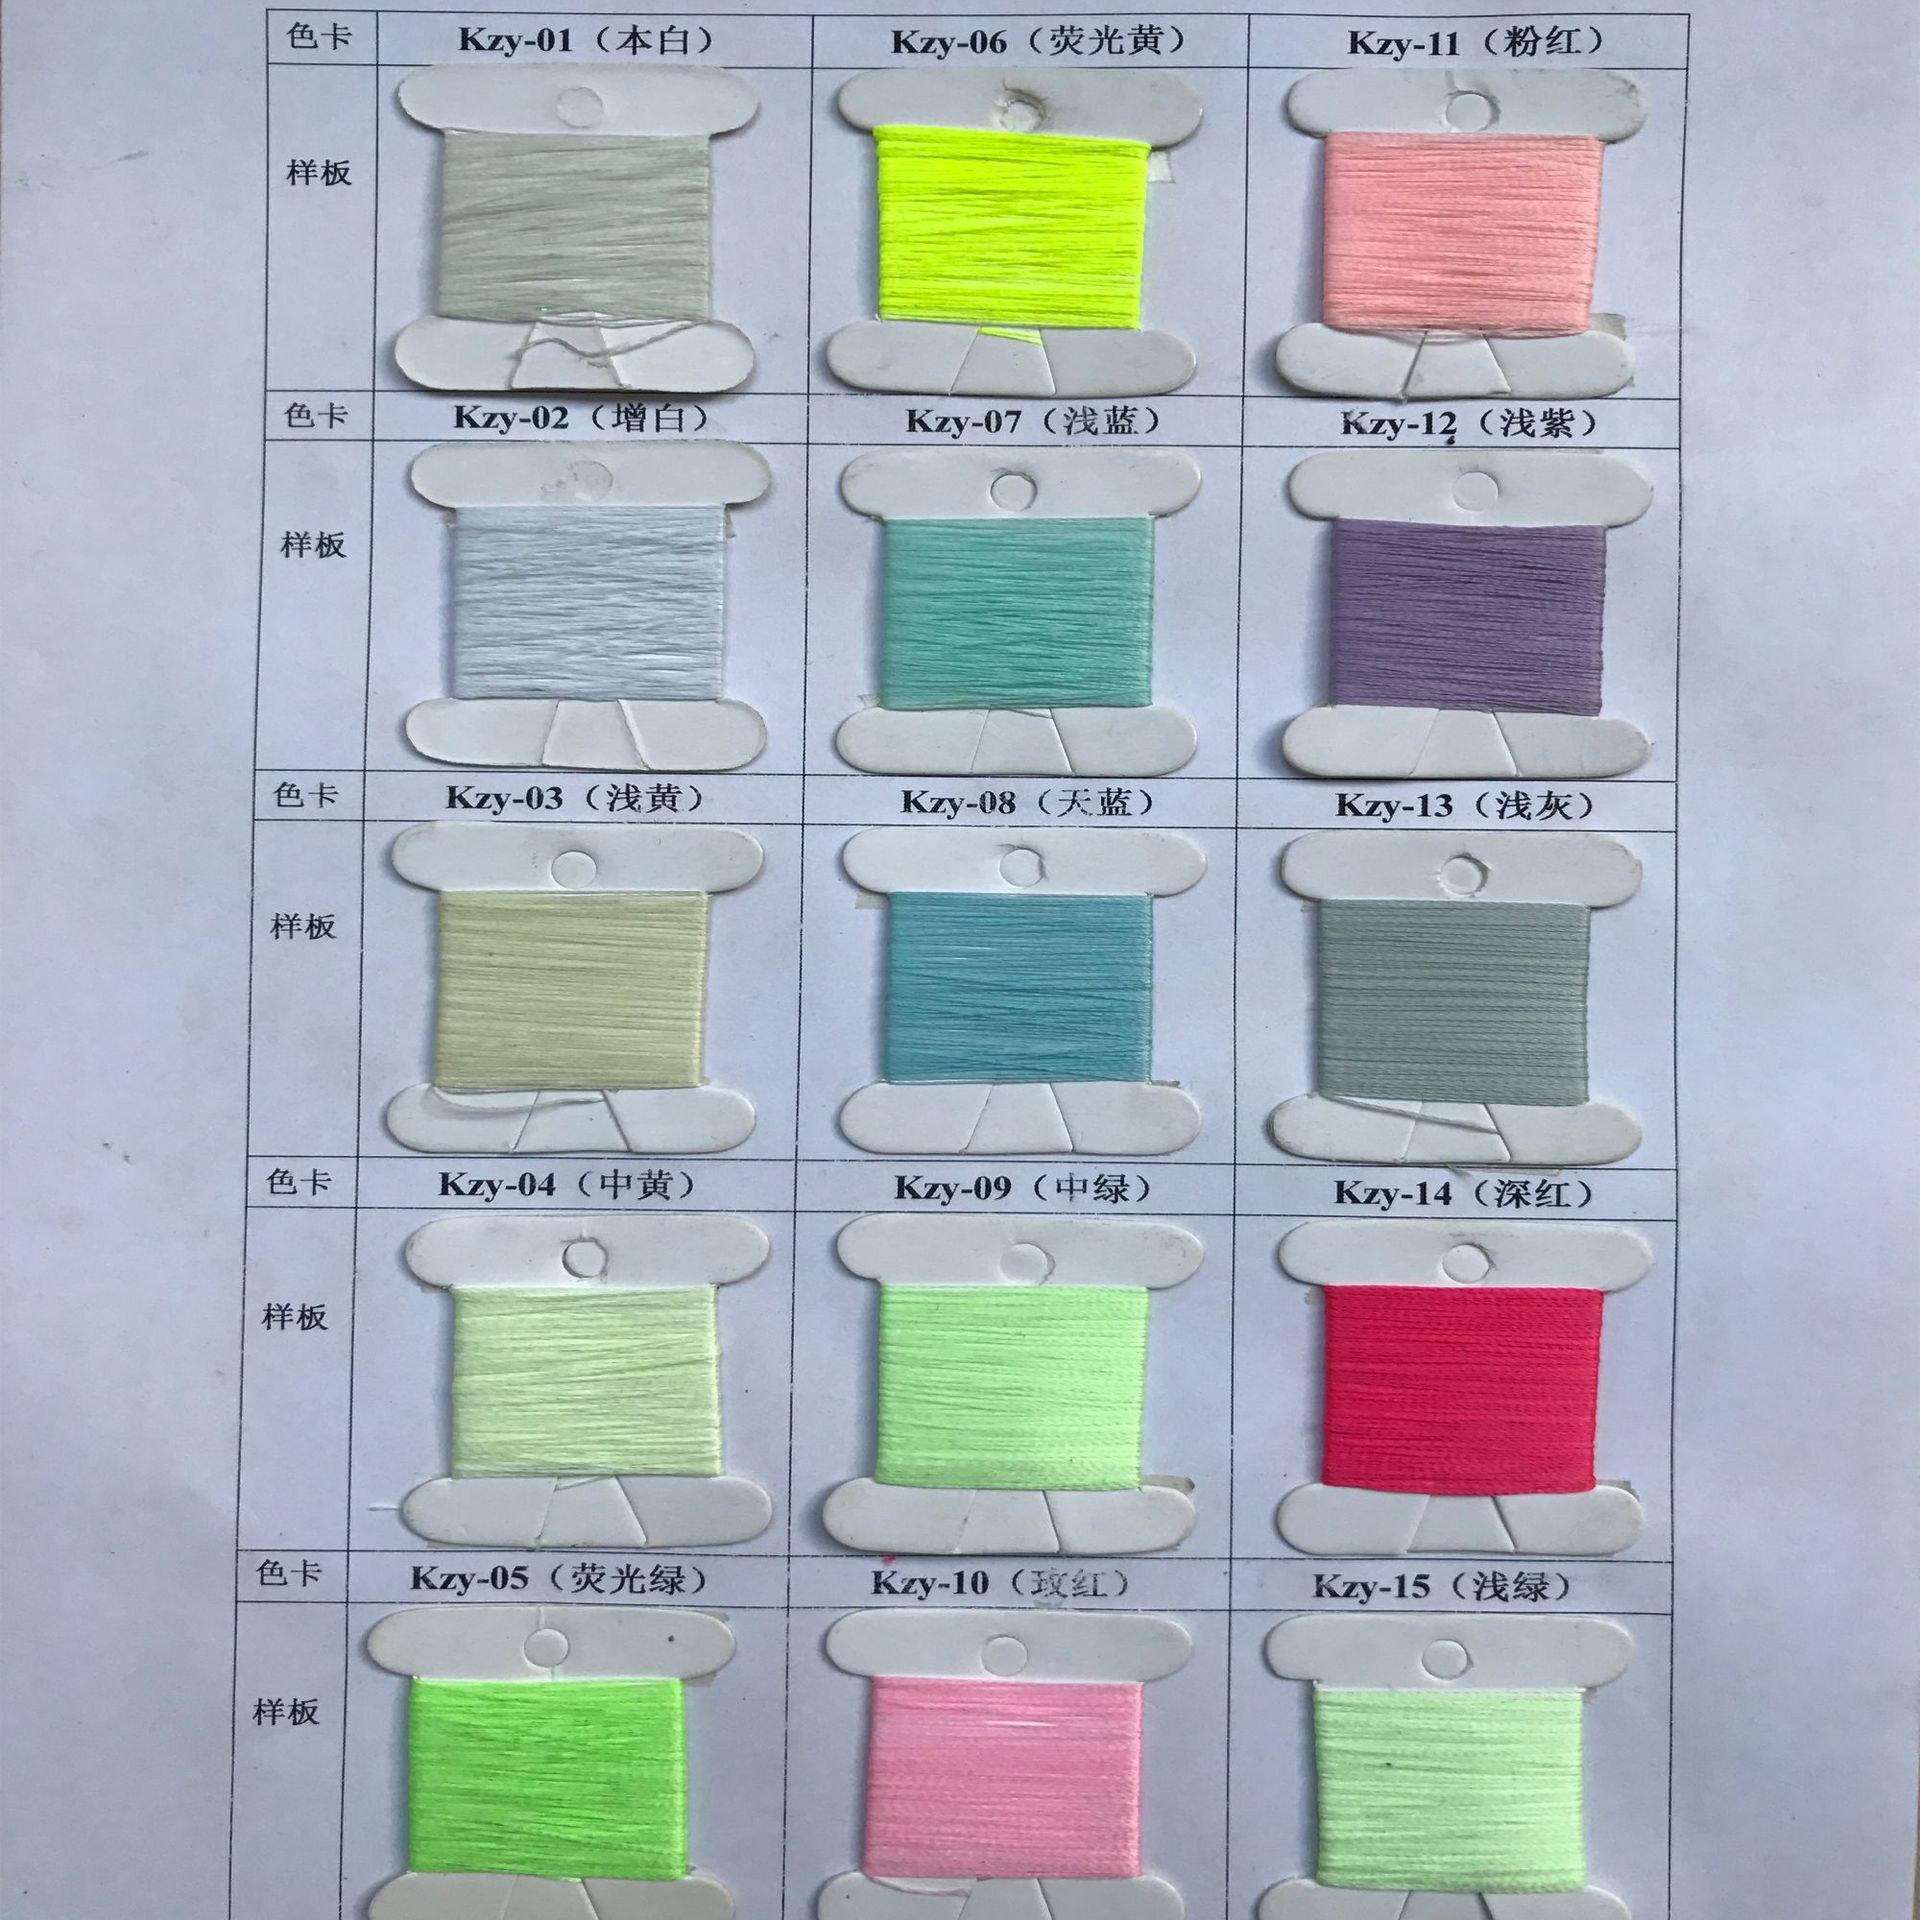 色卡 Kzy-01（本白） Kzy-06（荧光黄） Kzy-11（粉红）
样板
色卡 Kzy-02（增白） Kzy-07（浅蓝） Kzy-12（浅紫）
样板
色卡 Kzy-03（浅黄） Kzy-08（天蓝） Kzy-13（浅灰）
样板
色卡 Kzy-04（中黄） Kzy-09（中绿） Kzy-14（深红）
样板
色卡 Kzy-05（荧光绿） Kzy-10（玫红） Kzy-15（浅绿）
样板